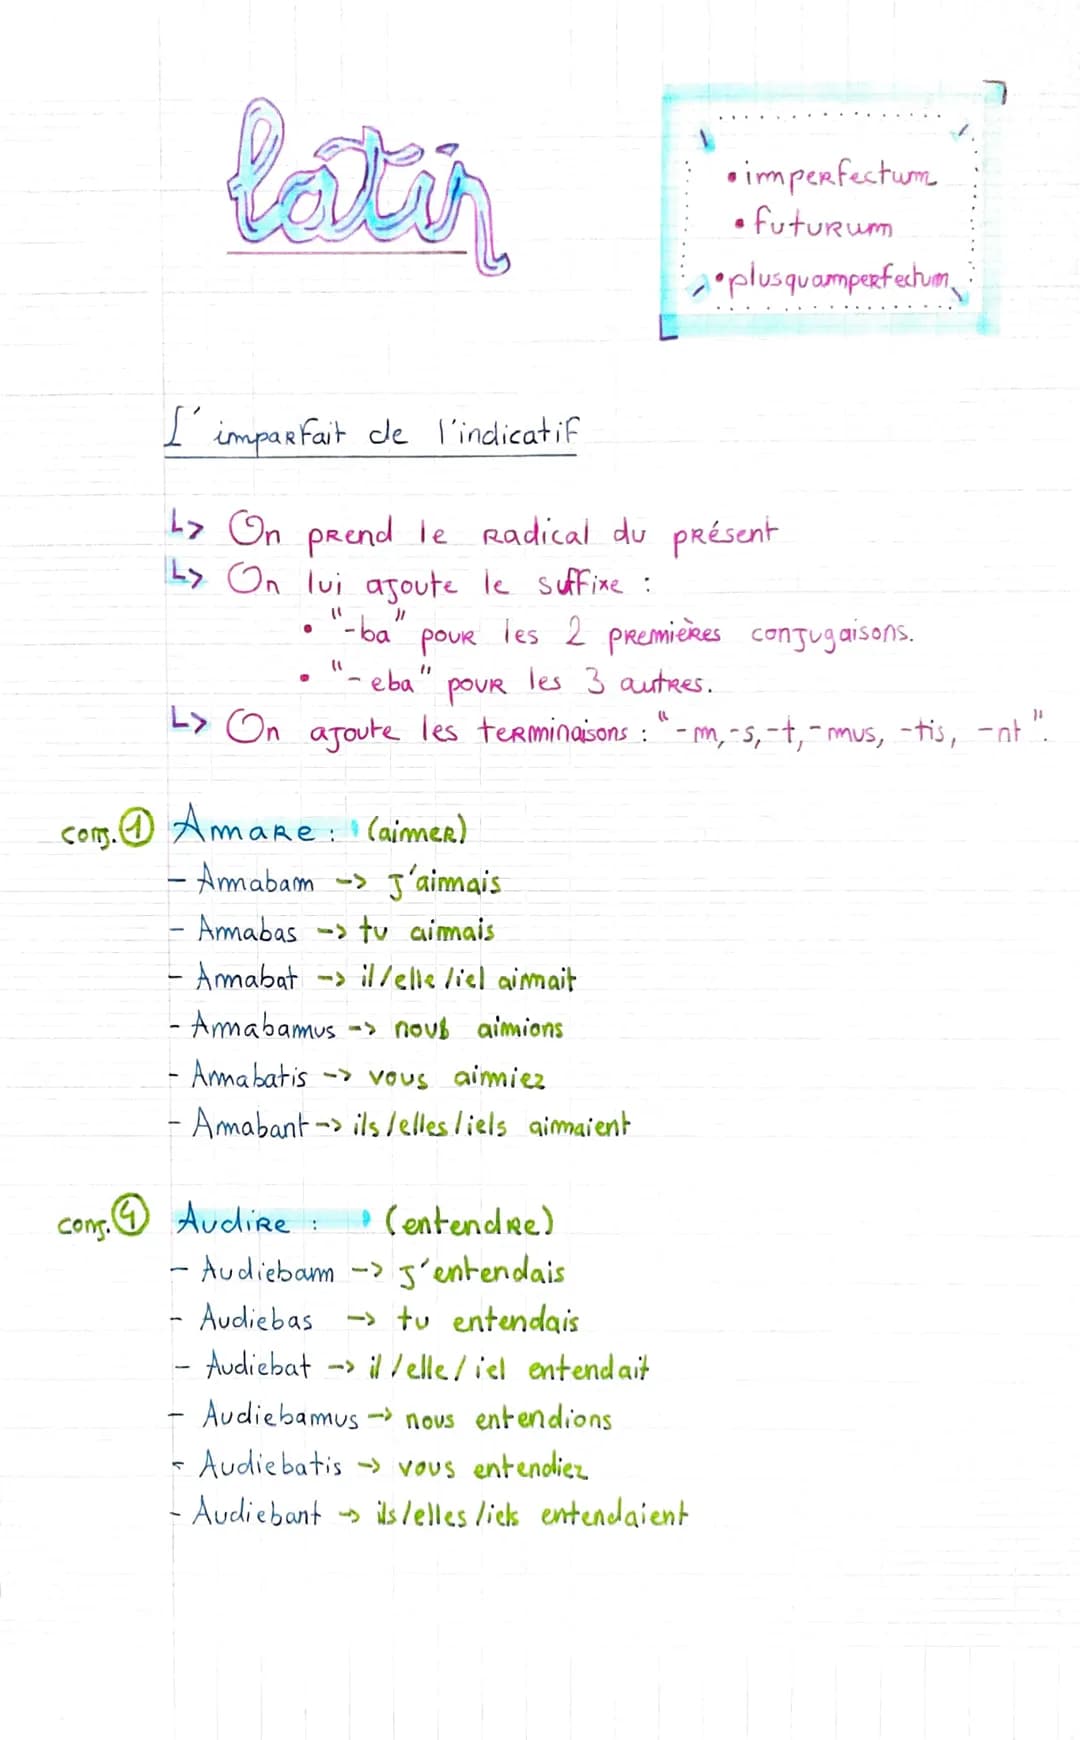 latin
• imperfectum
• futurum
• plusquamperfectum
L'imparfait de l'indicatif
↳ On prend le radical du présent
↳ On lui ajoute le suffixe :
• "-ba" pour les 2 premières conjugaisons.
• "-eba" pour les 3 autres.
↳ On ajoute les terminaisons : "-m,-s,-t,-mus, -tis, -nt".
conj. 1 Amare : (aimer)
- Amabam -> j'aimais
- Amabas -> tu aimais
- Amabat -> il/elle/iel aimait
- Amabamus -> nous aimions
- Amabatis -> vous aimiez
- Amabant -> ils/elles/iels aimaient
conj. 4 Audire : (entendre)
- Audiebam -> j'entendais
- Audiebas -> tu entendais
- Audiebat -> il/elle/iel entendait
- Audiebamus -> nous entendions
- Audiebatis -> vous entendiez
- Audiebant -> ils/elles/iels entendaient